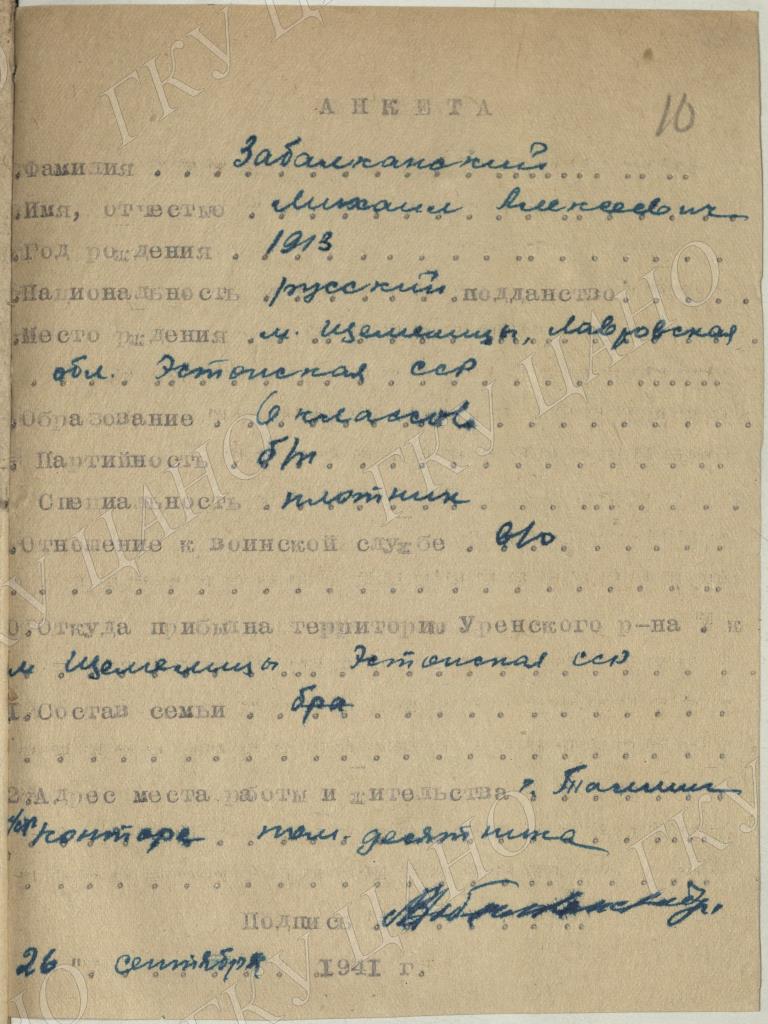 АНКЕТА
10
.Фамилия . . . Забалканский
.Имя, отчество . Михаил Алексеевич
.Год рождения . 1913
.Национальность русский подданство
.Место рждения . м. Щемелицы, Лавровская
обл. Эстонская ССР
.Образование . 6 классов
Партийность . б/п
Специальность . плотник
.Отношение к воинской службе . в/о
0.Откуда прибыл на территорию Уренского р-на
м Щемелицы Эстонская ССР
1.Состав семьи . бра
2.Адрес места работы и жительства г. Таллин
контора пом. десятника
Подпись
26 " сентября 1941 г.
ГКУ ЦАНО